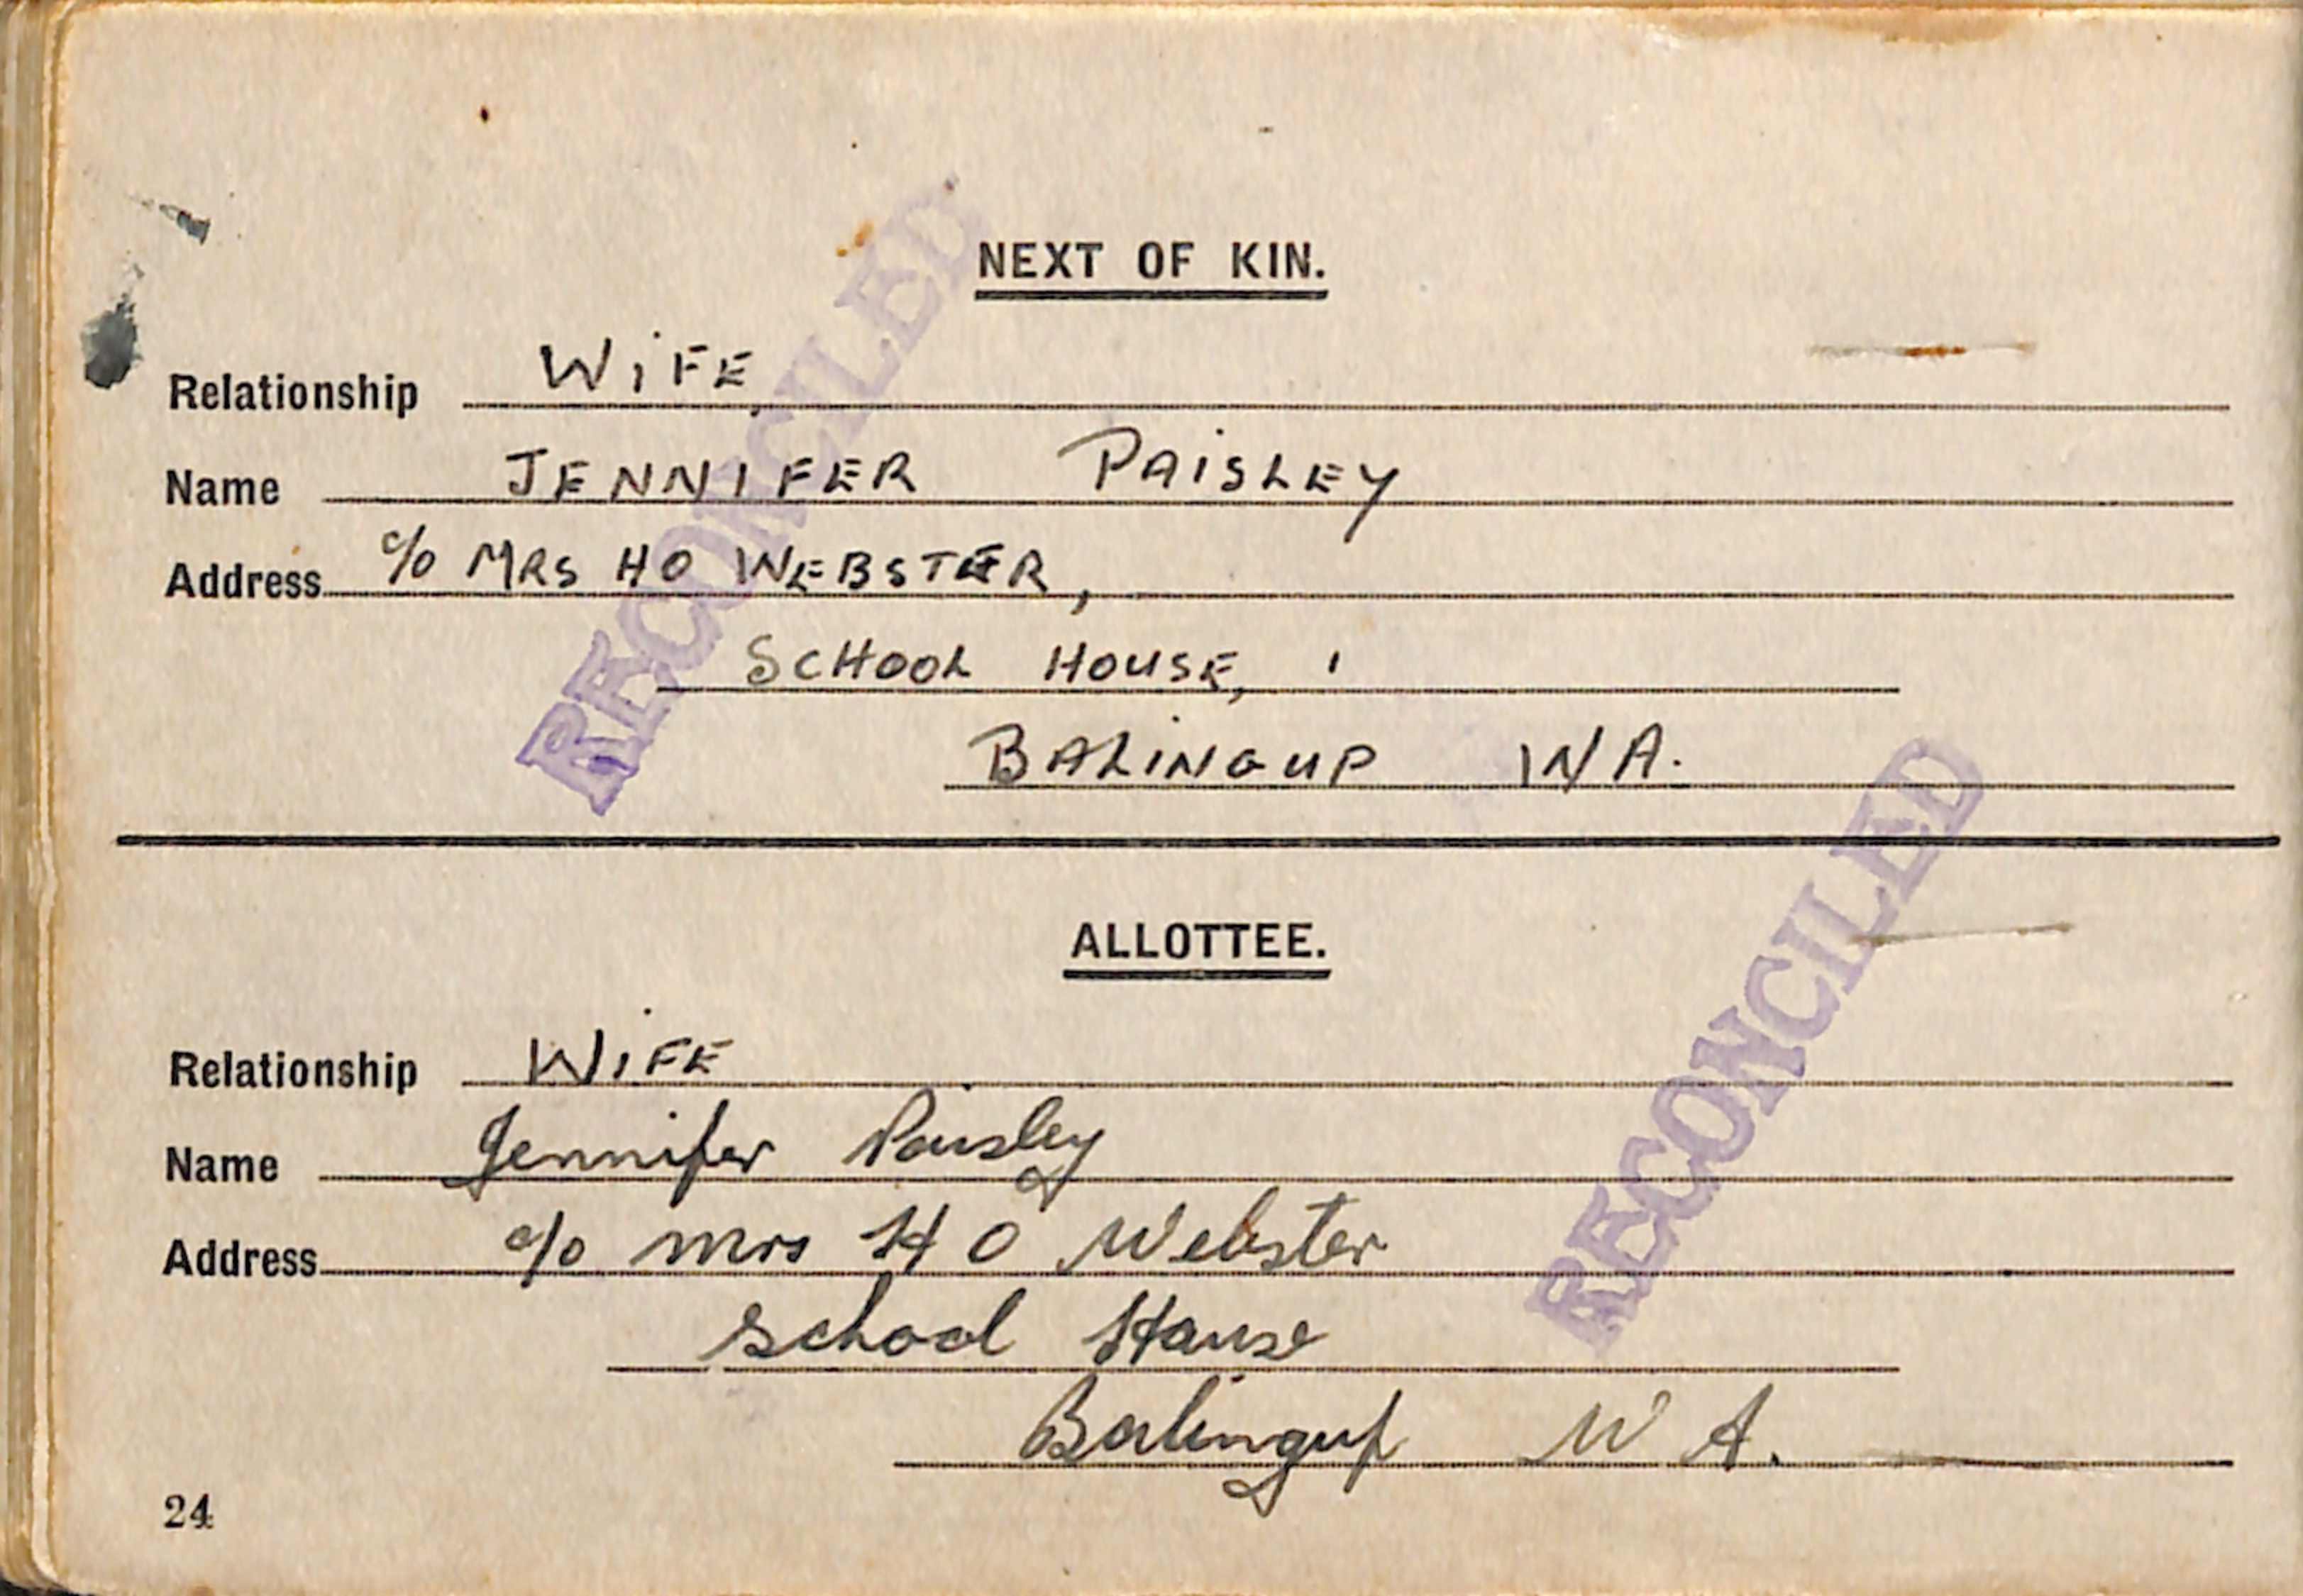 NEXT OF KIN.
Relationship WiFE
Name JENNIFER PAiSLEY
Address c/o MRS HO WEBSTER,
SCHOOL HOUSE,
BALiNGUP WA.
RECONCILED
ALLOTTEE.
Relationship WiFE
Name Jennifer Paisley
Address c/o Mrs H O Webster
School House
Balingup W A.
RECONCILED
24